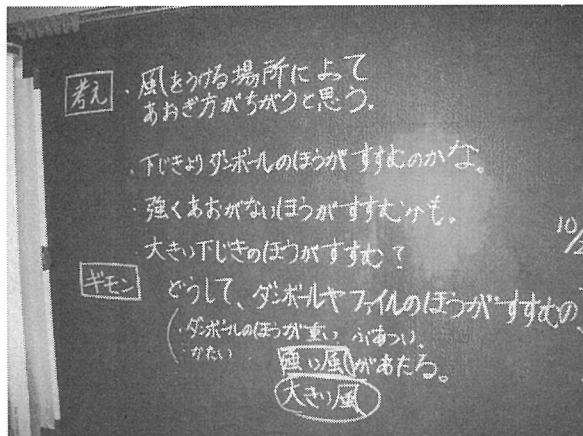 考え ・風をうける場所によって
あおぎ方がちがうと思う。
・下じきよりダンボールのほうがすすむのかな。
・強くあおがないほうがすすむかも。
大きい下じきのほうがすすむ?
10/2
ギモン どうして、ダンボールやファイルのほうがすすむの
・ダンボールのほうが重い ぶあつい、
・かたい
強い風があたる。
大きい風